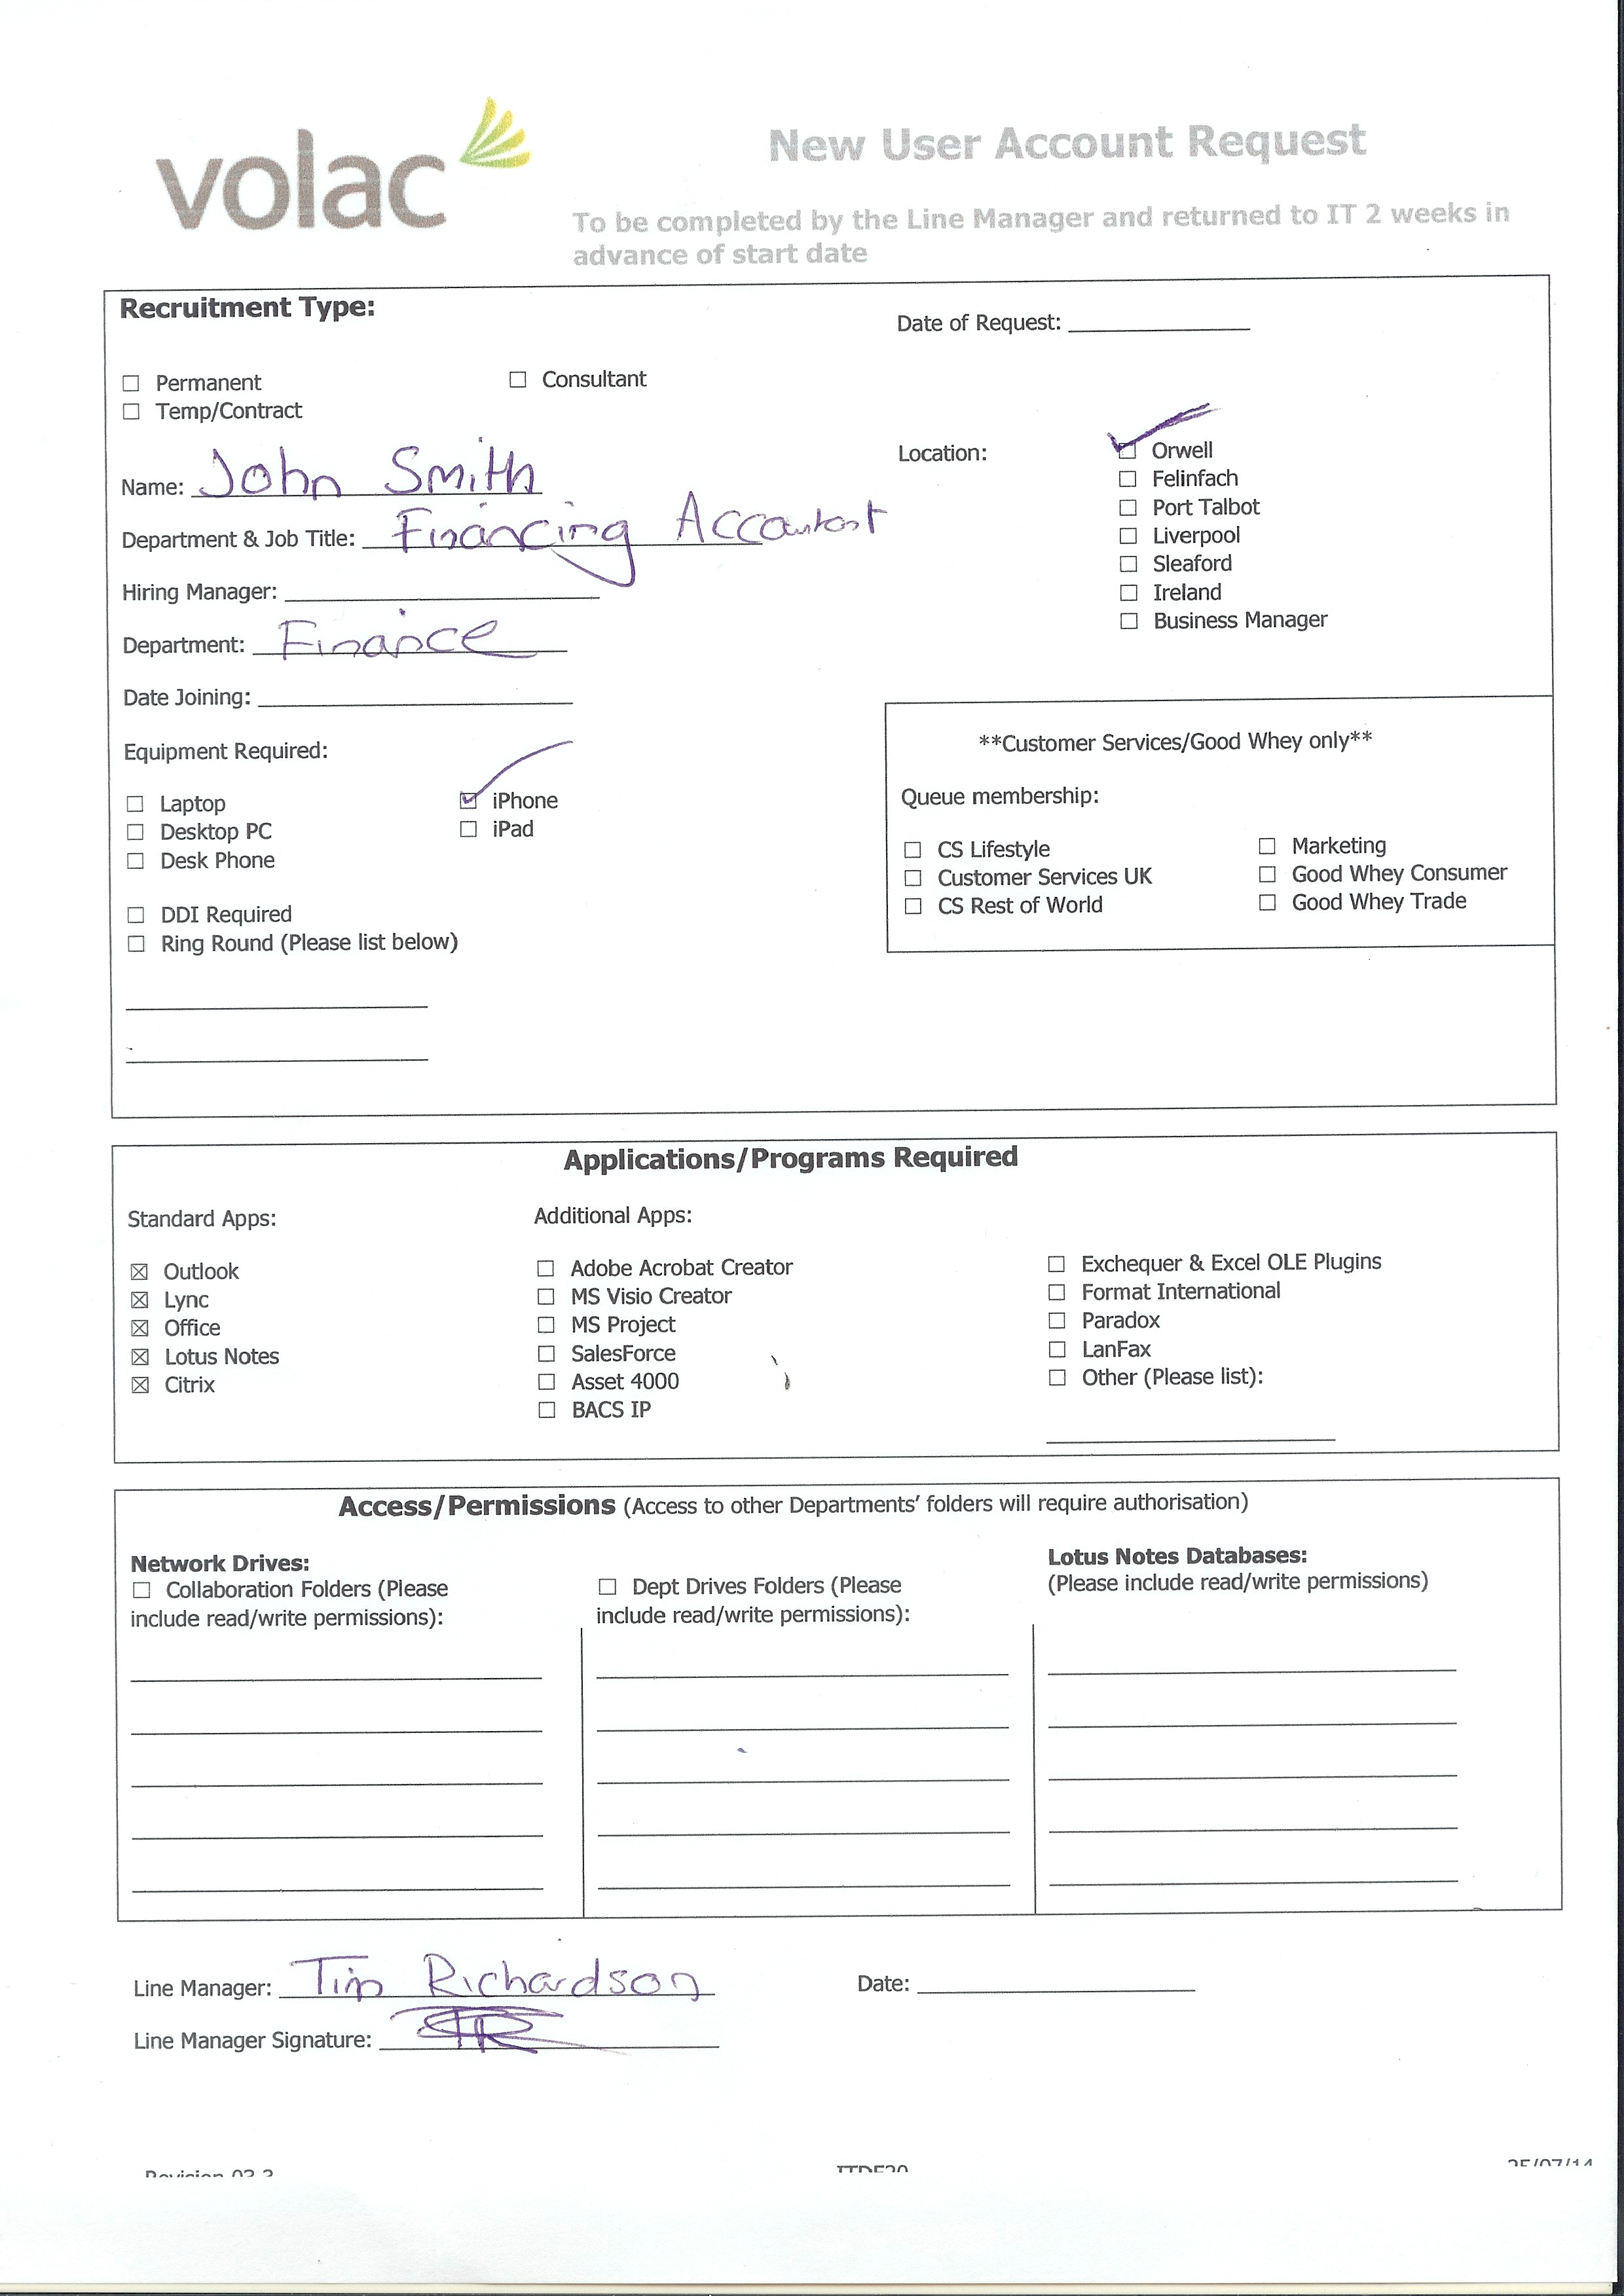 volac
New User Account Request
To be completed by the Line Manager and returned to IT 2 weeks in
advance of start date
Recruitment Type:
Date of Request:
☐ Permanent
☐ Consultant
☐ Temp/Contract
Name: John Smith
Department & Job Title: Financing Accountant
Hiring Manager:
Department: Finance
Date Joining:
Location:
☑ Orwell
☐ Felinfach
☐ Port Talbot
☐ Liverpool
☐ Sleaford
☐ Ireland
☐ Business Manager
Equipment Required:
☐ Laptop
☐ Desktop PC
☐ Desk Phone
☑ iPhone
☐ iPad
☐ DDI Required
☐ Ring Round (Please list below)
**Customer Services/Good Whey only**
Queue membership:
☐ CS Lifestyle
☐ Customer Services UK
☐ CS Rest of World
☐ Marketing
☐ Good Whey Consumer
☐ Good Whey Trade
Applications/Programs Required
Standard Apps:
☒ Outlook
☒ Lync
☒ Office
☒ Lotus Notes
☒ Citrix
Additional Apps:
☐ Adobe Acrobat Creator
☐ MS Visio Creator
☐ MS Project
☐ SalesForce
☐ Asset 4000
☐ BACS IP
☐ Exchequer & Excel OLE Plugins
☐ Format International
☐ Paradox
☐ LanFax
☐ Other (Please list):
Access/Permissions (Access to other Departments’ folders will require authorisation)
Network Drives:
☐ Collaboration Folders (Please
include read/write permissions):
☐ Dept Drives Folders (Please
include read/write permissions):
Lotus Notes Databases:
(Please include read/write permissions)
Line Manager: Tim Richardson
Date:
Line Manager Signature: TR
Revision 03.2
25/07/14